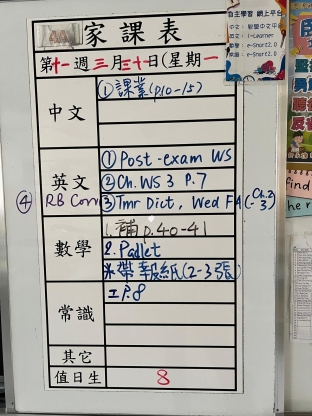 4A
家課表
第十一週三月三十日(星期一
中文
①課業(p.10-15)
英文
①Post-exam WS
②Ch.WS 3 P.7
③Tmr Dict, Wed FA(Ch.2-3)
④ RB Corr
數學
1.補p.40-41
2.Padlet
※帶報紙(2-3張)
常識
工P.8
其它
值日生
8
自主學習 網上平台
find
her